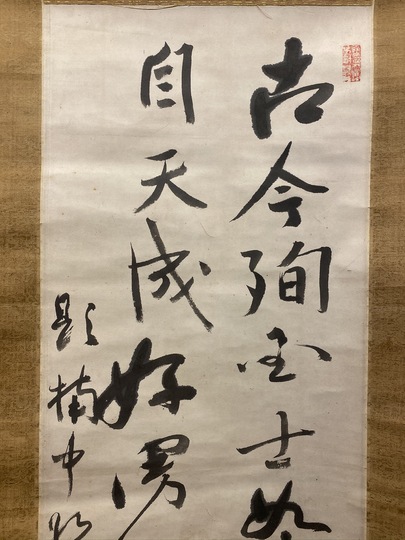 古今殉国士如
自天成好男
題楠中